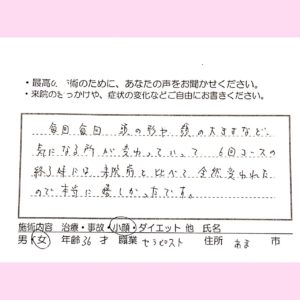 ・最高の施術のために、あなたの声をお聞かせください。
・来院のきっかけや、症状の変化などご自由にお書きください。
毎回毎回 頭の形や顔の大きさなど、
気になる所が変わっていって 6回コースの
終了時には 来院前と比べて全然変われた
ので本当に嬉しかったです。
施術内容 治療・事故・小顔・ダイエット 他 氏名
男・女 年齢 36 才 職業 セラピスト 住所 あま 市